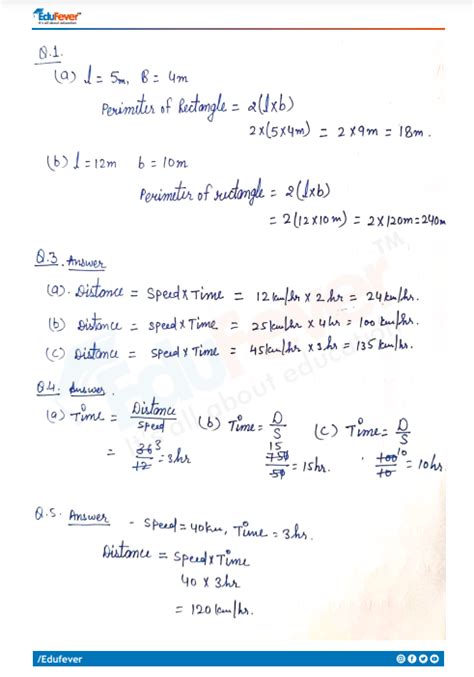 EduFever
It's all about education
Q.1.
(a) l = 5m, B = 4m
Perimeter of Rectangle = 2(l×b)
2×(5×4m) = 2×9m = 18m.
(b) l = 12m b = 10m
Perimeter of rectangle = 2(l×b)
= 2(12×10m) = 2×120m = 240m
Q.3. Answer
(a). Distance = Speed × Time = 12 km/hr × 2 hr = 24 km/hr.
(b) Distance = speed × Time = 25 km/hr × 4 hr = 100 km/hr.
(c) Distance = speed × Time = 45 km/hr × 3 hr = 135 km/hr.
Q.4. Answer.
(a) Time = Distance/Speed (b) Time = D/S (c) Time = D/S
= 36 3/12 = 3hr 15 750/50 = 15hr. 100 10/10 = 10hr.
Q.5. Answer - Speed = 40km, Time = 3hr.
Distance = Speed × Time
40 × 3hr
= 120 km/hr.
EduFever™
It's all about education
/Edufever